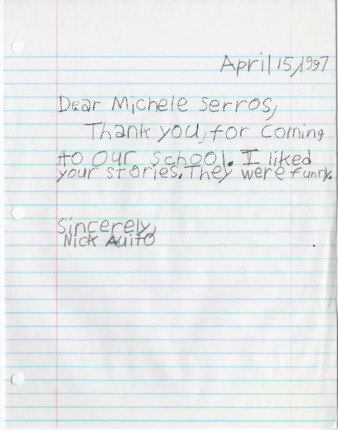 April 15,1997
Dear Michele Serros,
Thank you, for coming
to our school. I liked
your stories. They were funny.
Sincerely,
Nick Auito